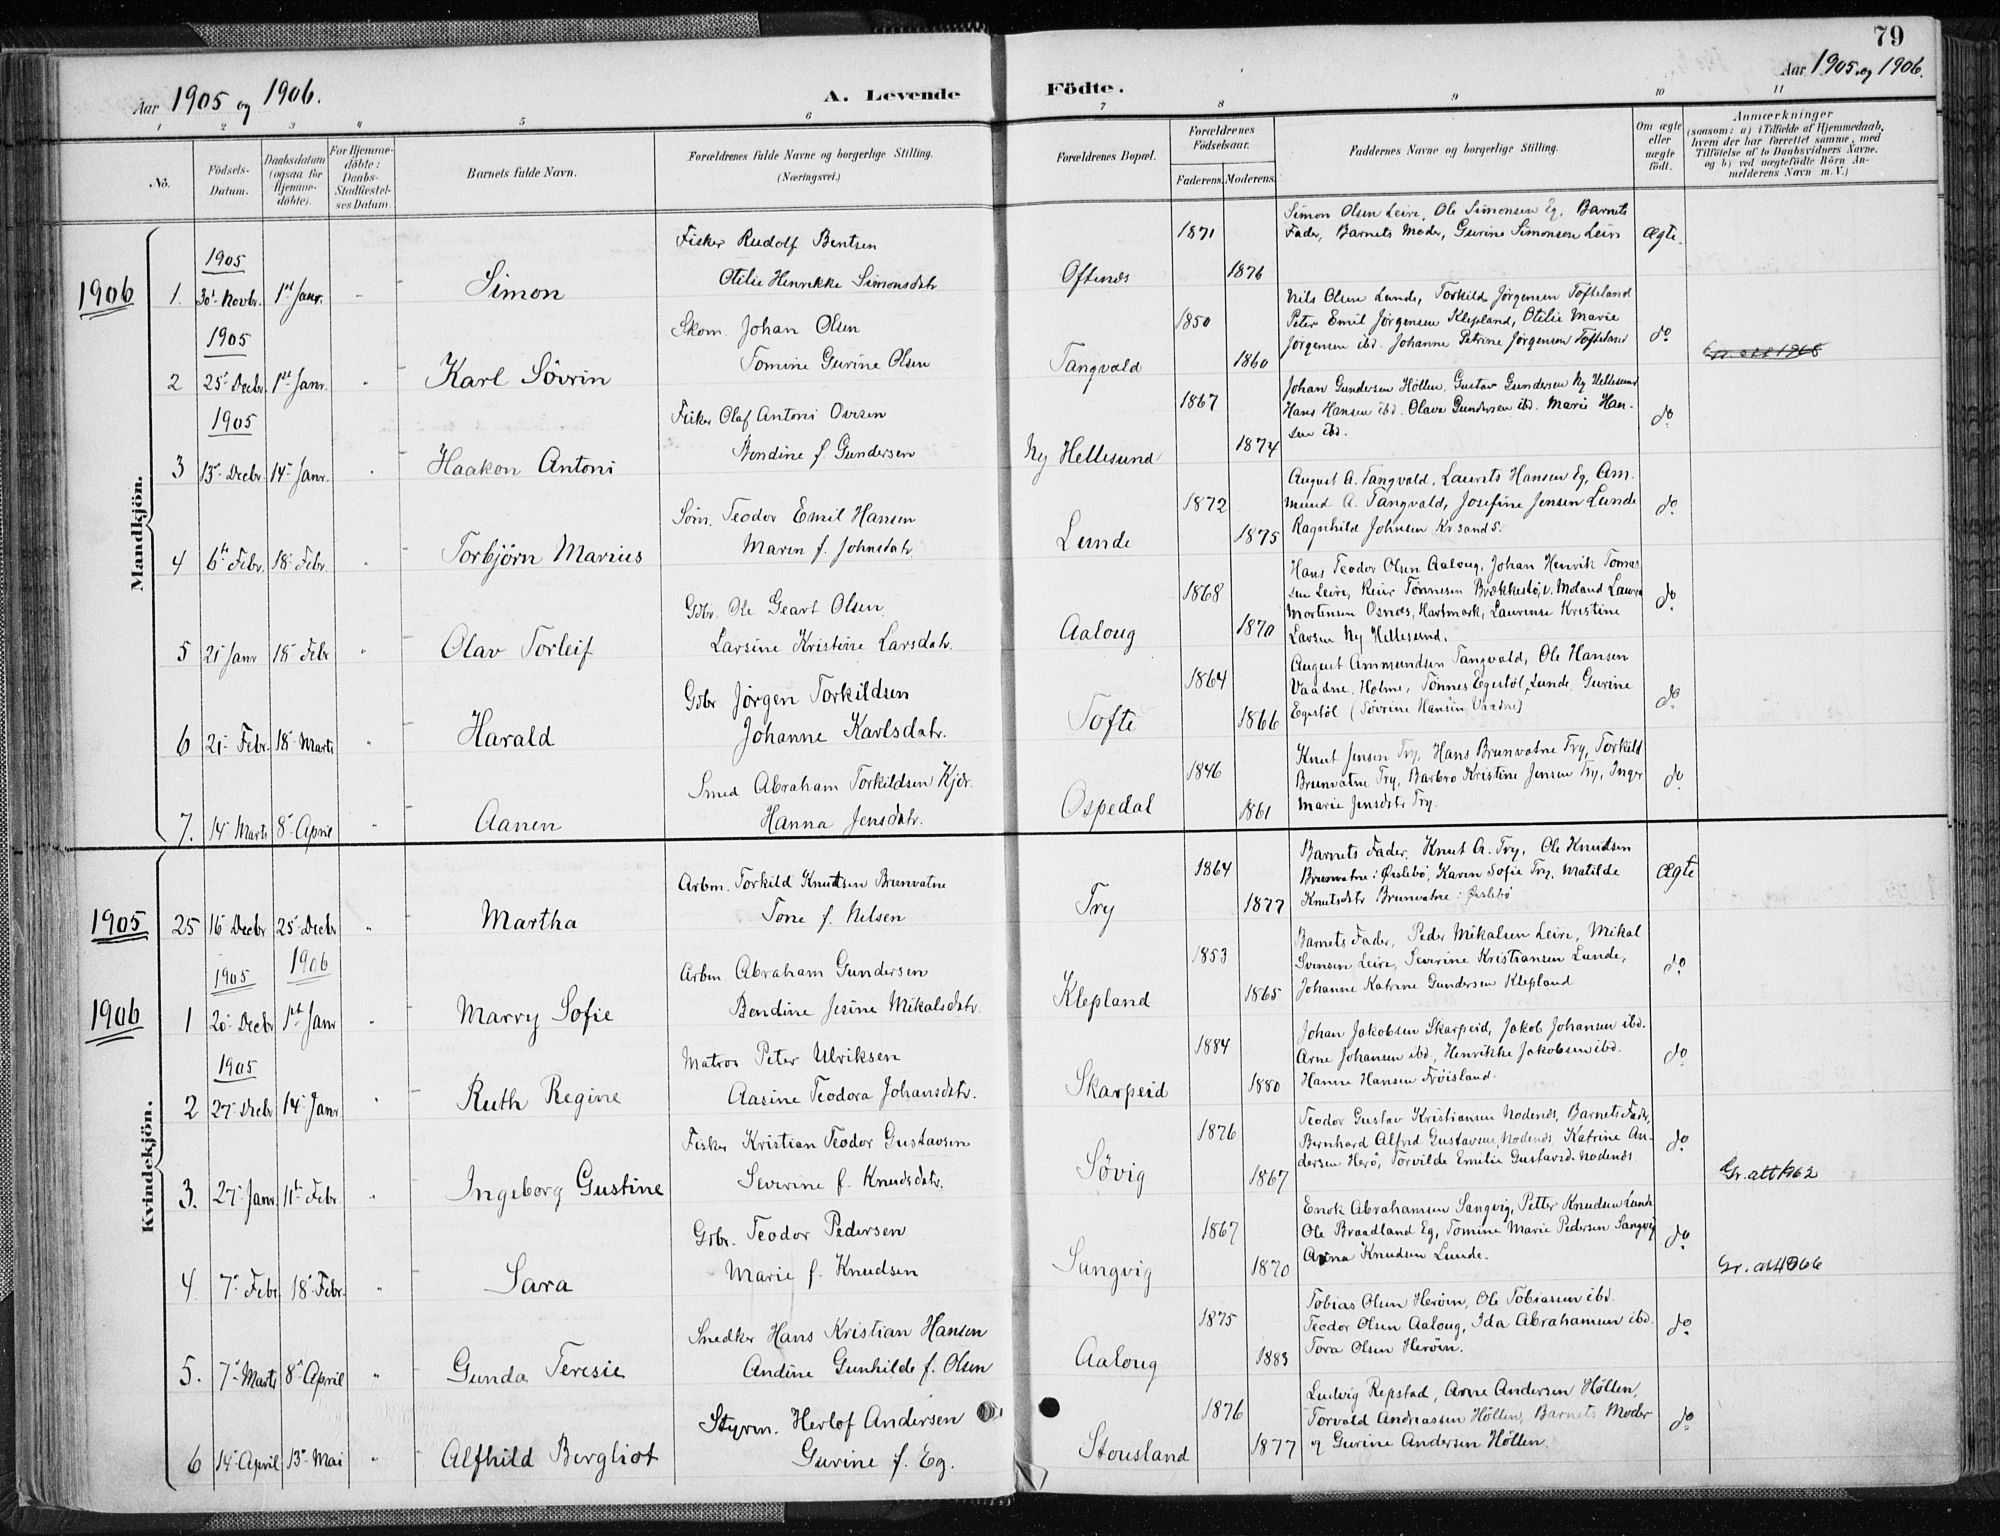 79
Aar 1905 og 1906.
A. Levende
Födte.
Aar 1905 og 1906.
1 2 3 4 5 6 7 8 9 10 11
No.
Födsels-Datum.
Daabsdatum (ogsaa for Hjemmedöbte).
For Hjemmedöbte: Daabs-Stadfæstelses Datum.
Barnets fulde Navn.
Forældrenes fulde Navne og borgerlige Stilling. (Næringsvei.)
Forældrenes Bopæl.
Forældrenes Födselsaar.
Faderens. Moderens.
Faddernes Navne og borgerlige Stilling.
Om ægte eller uægte födt.
Anmærkninger
(saasom: a) i Tilfælde af Hjemmedaab, hvem der har forrettet samme, med Tilföielse af to Daabsvidners Navne, og b) ved uægtefödte Börn Anmelderens Navn m. V.)
Mandkjön.
1906
1905
1. 30' Novbr. 1st Janr. Simon
Fisker Rudolf Bentsen
Otilie Henrikke Simonsdatr
Oftenes 1871 1876
Simon Olsen Leire, Ole Simonsen Eg, Barnets
Fader, Barnets Moder, Gurine Simonsen Leire
Ægte.
1905
2 25' Decbr. 1st Janr. Karl Sövrin
Skom. Johan Olsen
Tomine Gurine Olsen
Tangvald 1850 1860
Nils Olsen Lunde, Torkild Jörgensen Tofteland
Peter Emil Jörgensen Klepland, Otilie Marie
Jörgensen ibd. Johanne Petrine Jörgensen Tofteland
do
1905
3 13' Decbr. 14' Janr. Haakon Antoni
Fisker Olaf Antoni Ovesen
Bondine f. Gundersen
Ny Hellesund 1867 1874
Johan Gundersen Höllen, Gustav Gundersen Ny Hellesund
Hans Hansen ibd. Olava Gundersen ibd. Marie Han-
sen ibd.
do
4 6te Febr. 18' Febr. Torbjörn Marius
Söm. Teodor Emil Hansen
Maren f. Johnsdatr.
Lunde 1872 1875
August A. Tangvald, Laurits Hansen Eg, Am-
mund A. Tangvald, Josefine Jensen Lunde
Ragnhild Johnsen Kr.sand S.
do
5 21' Janr 18' Febr Olav Torleif
Gdbr. Ole Geart Olsen
Larsine Kristine Larsdatr.
Aaloug 1868 1870
Hans Teodor Olsen Aaloug, Johan Henrik Tomas
sen Leire, Reier Tönnesen Brækkestö, v. Moland Laura
Mortensen Osnes, Hartmark, Laurense Kristine
Larsen Ny Hellesund.
do
6 21' Febr. 18' Marts Harald
Gdbr Jörgen Torkildsen
Johanne Karlsdatr.
Tofte 1864 1866
August Ammundsen Tangvald, Ole Hansen
Vaadne, Holme, Tönnes Egestöl Lunde, Gurine
Egestöl (Sövrine Hansen Vaadne)
do
7. 14' Marts 8' April Aanen
Smed Abraham Torkildsen Kjær.
Hanna Jensdatr.
Ospedal 1846 1861
Knut Jensen Try, Hans Brunvatne Try, Torkild
Brunvatne Try, Barbro Kristine Jensen Try, Inger
Marie Jensdatr Try.
do
Kvindekjön.
1905
25 16' Decbr 25' Decbr Martha
Arbm. Torkild Knutsen Brunvatne
Tone f. Nilsen
Try 1864 1877
Barnets Fader, Knut A. Try, Ole Knutsen
Brunvatne i Øvslebö, Karen Sofie Try, Matilde
Knutsdtr Brunvatne i Øvslebö
Ægte
1905 1906
1906
1 20' Decbr 1st Janr Marry Sofie
Arbm Abraham Gundersen
Bendine Jesine Mikalsdatr.
Klepland 1853 1865
Barnets Fader, Peder Mikalsen Leire, Mikal
Svensen Leire, Severine Kristiansen Lunde,
Johanne Katrine Gundersen Klepland
do
1905
2 27' Decbr 14' Janr Ruth Regine
Matros Peter Ulriksen
Aasine Teodora Johansdtr.
Skarpeid 1884 1880
Johan Jakobsen Skarpeid, Jakob Johansen ibd.
Arne Johansen ibd, Henrikke Jakobsen ibd.
Hanne Hansen Fröisland.
do
3. 27' Janr. 11te Febr. Ingeborg Gustine
Fisker Kristian Teodor Gustavsen
Severine f. Knudsdatr.
Sövig 1876 1867
Teodor Gustav Kristiansen Nodenes, Barnets Fader,
Bernhard Alfred Gustavsen Nodenes, Katrine An-
dersen Herö, Torvilde Emilie Gustavsd. Nodenes
do
Gr. att 1962
4. 7' Febr 18' Febr. Sara
Gdbr. Teodor Pedersen
Marie f. Knudsen
Sangvig 1867 1870
Enok Abrahamsen Sangvig, Petter Knudsen Lunde
Ole Braadland Eg, Tomine Marie Pedersen Sangvig
Anna Knudsen Lunde.
do
5. 7' Marts 8' April Gunda Teresie
Snedker Hans Kristian Hansen
Andine Gunhilde f. Olsen
Aaloug 1875 1883
Tobias Olsen Heröen, Ole Tobiassen ibd.
Teodor Olsen Aaloug, Ida Abrahamsen ibd.
Tora Olsen Heröen.
do
6 14' April 13' Mai Alfhild Bergliot
Styrm. Herlof Andersen
Gurine f. Eg.
Stousland 1876 1877
Ludvig Repstad, Arne Andersen Höllen,
Torvald Andreassen Höllen, Barnets Moder
og Gurine Andersen Höllen.
do